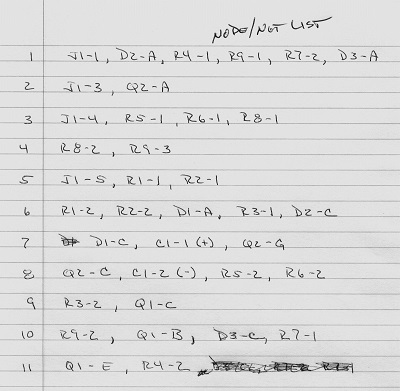 NODE/NET LIST
1 J1-1, D2-A, R4-1, R9-1, R7-2, D3-A
2 J1-3, Q2-A
3 J1-4, R5-1, R6-1, R8-1
4 R8-2, R9-3
5 J1-5, R1-1, R2-1
6 R1-2, R2-2, D1-A, R3-1, D2-C
7 D1-C, C1-1 (+), Q2-G
8 Q2-C, C1-2 (-), R5-2, R6-2
9 R3-2, Q1-C
10 R9-2, Q1-B, D3-C, R7-1
11 Q1-E, R4-2